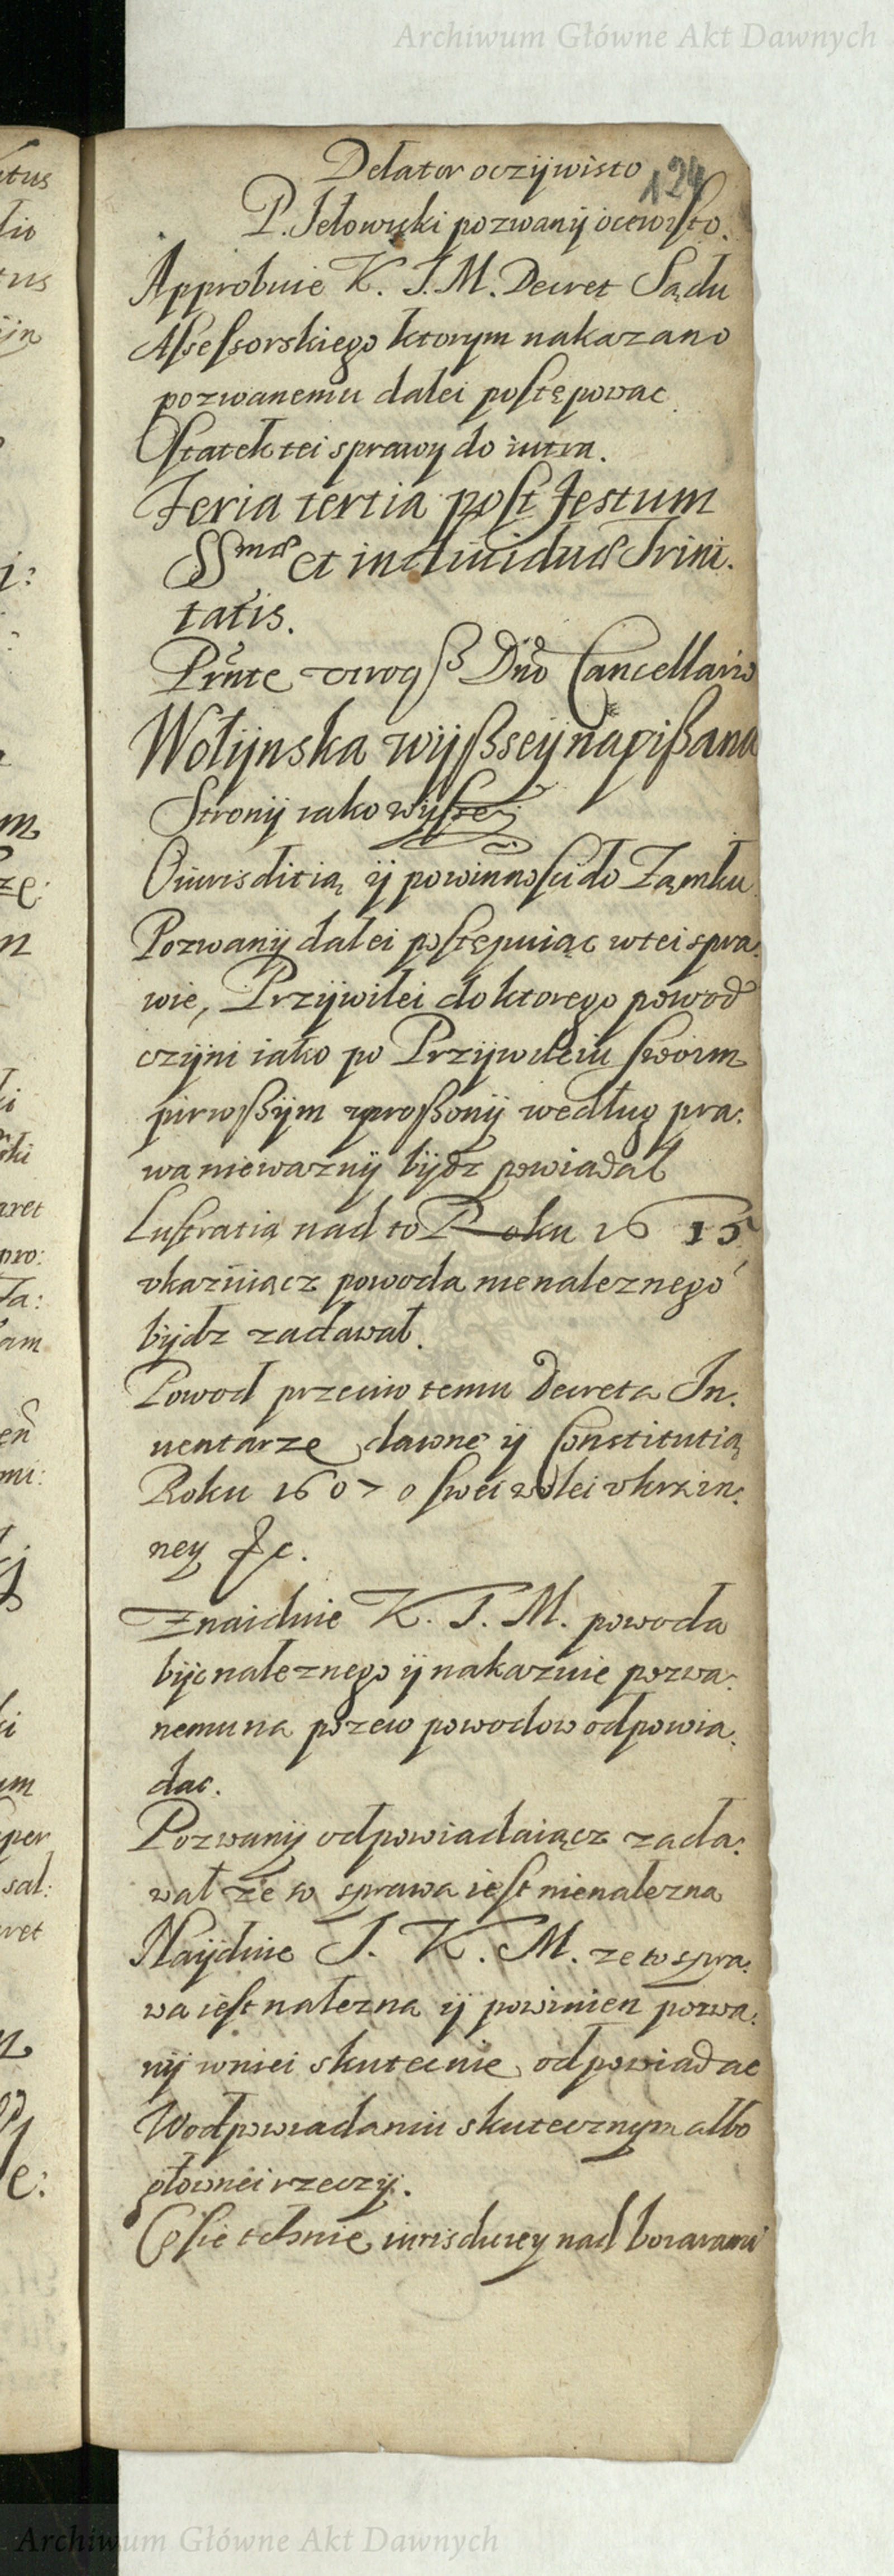 Archiwum Główne Akt Dawnych
124
Delator oczijwisto
P. Jełowicki pozwanij ocewisto.
Approbuie K. J. M. Decret Sądu
Assessorskiego ktorym nakazano
pozwanemu dalei postępowac
Ostatek tei sprawy do iutra.
Feria tertia post Festum
SSmæ et indiuiduæ Trini.
tatis.
Prnte Dno Cancellario
Wołijnska wijßseij napißana
Stronij iako wijssei
O iurisditią ij powinnosci do Zamku
Pozwanij dalei postępuiąc w tei spra:
wie, Przijwilei do ktorego powod
czijni iako po Przijwileiu swoim
pirwßijm vproßonij według pra:
wa niewaznij bijdz powiadał
Lustratią nad to Roku 1615
vkazuiącz powoda nienaleznego
bijdz zadawał.
Powod przeciw temu Decreta In:
uentarze dawne ij Constitutią
Roku 1607 o swei wolei vkrain:
ney &c.
Znaiduie K. J. M. powoda
bijc naleznego ij nakazuie pozwa:
nemu na pozew powodow odpowia:
dac.
Pozwanij odpowiadaiącz zada:
wał ze to sprawa iest nienalezna
Naijduie J. K. M. ze to spra:
wa iest nalezna ij powinien pozwa:
nij w niei skutecnie odpowiadac
W odpowiadaniu skutecznym albo
głownei rzeczij.
Co sie tchnie iurisdicey nad boiarami
Archiwum Główne Akt Dawnych